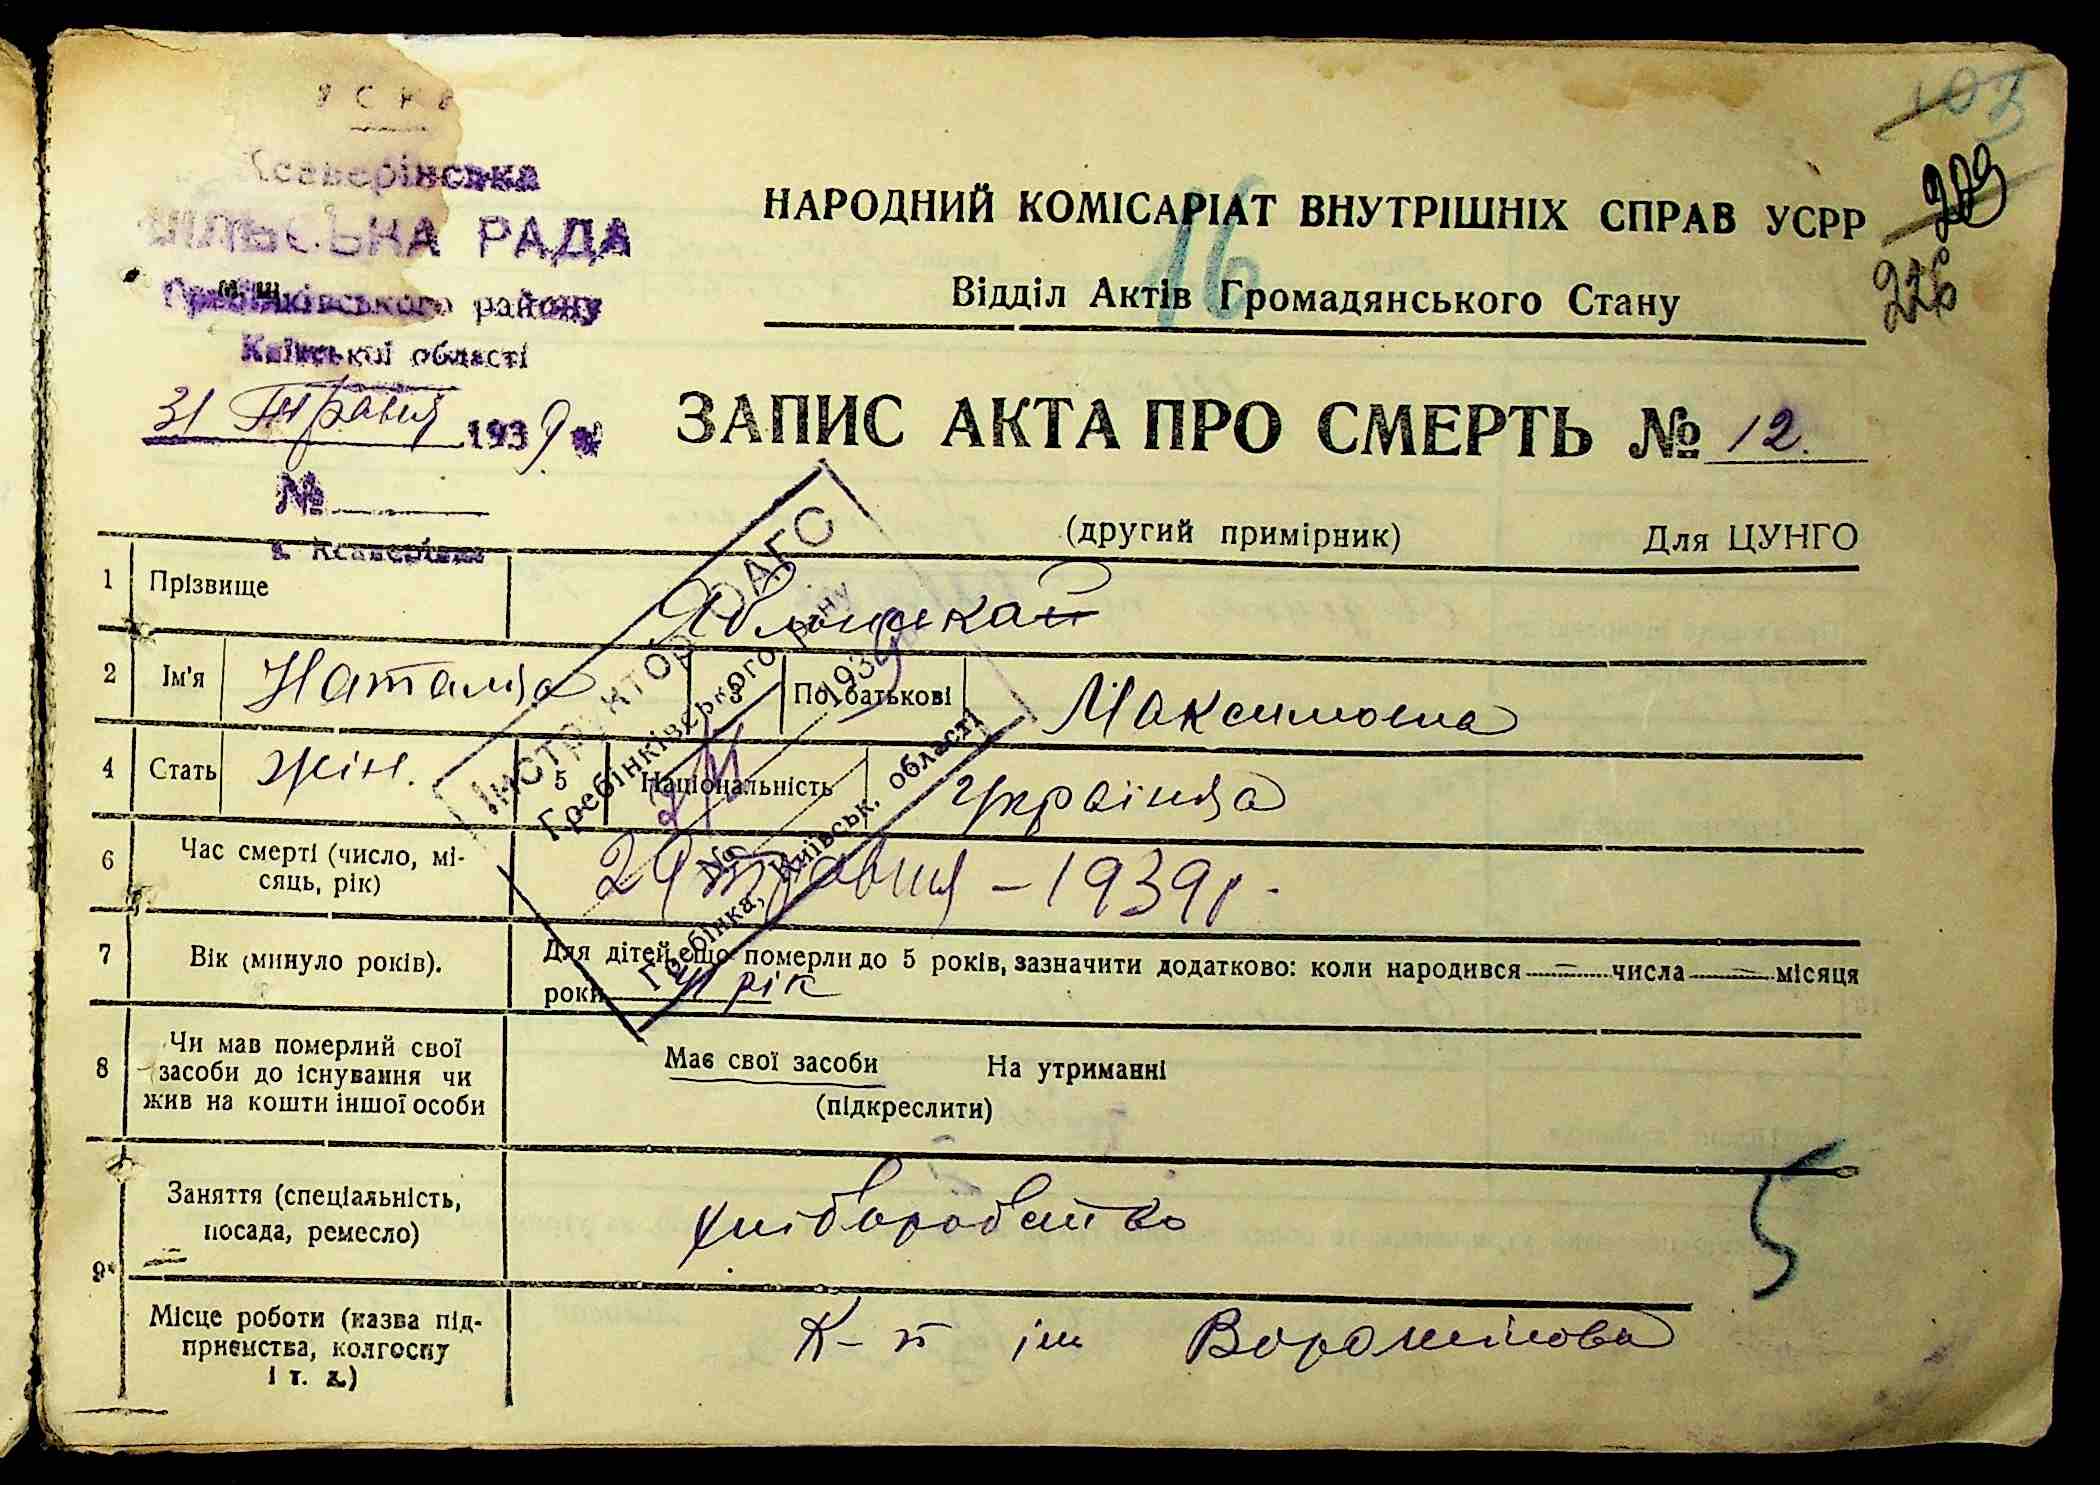 УСРР
Ксаверівська
СІЛЬСЬКА РАДА
Гребінківського району
Київської області
31 Травня 1939 р.
№
с. Ксаверівка
103
203
226
16
НАРОДНИЙ КОМІСАРІАТ ВНУТРІШНІХ СПРАВ УСРР
Відділ Актів Громадянського Стану
ЗАПИС АКТА ПРО СМЕРТЬ № 12.
(другий примірник) Для ЦУНГО
1 Прізвище
2 Ім'я Наталія 3 По батькові Максимовна
4 Стать жін. 5 Національність Українка
6 Час смерті (число, мі-
сяць, рік) 29 травня – 1939 р.
7 Вік (минуло років). Для дітей, що померли до 5 років, зазначити додатково: коли народився — числа — місяця
роки рік
8 Чи мав померлий свої
засоби до існування чи
жив на кошти іншої особи
Має свої засоби На утриманні
(підкреслити)
9 Заняття (спеціальність,
посада, ремесло) хліборобство
5
Місце роботи (назва під-
приємства, колгоспу
і т. д.) К-п ім Ворошилова
Інструктор ОАГС
Гребінківського району
1939
№
Гребінка, Київськ. області